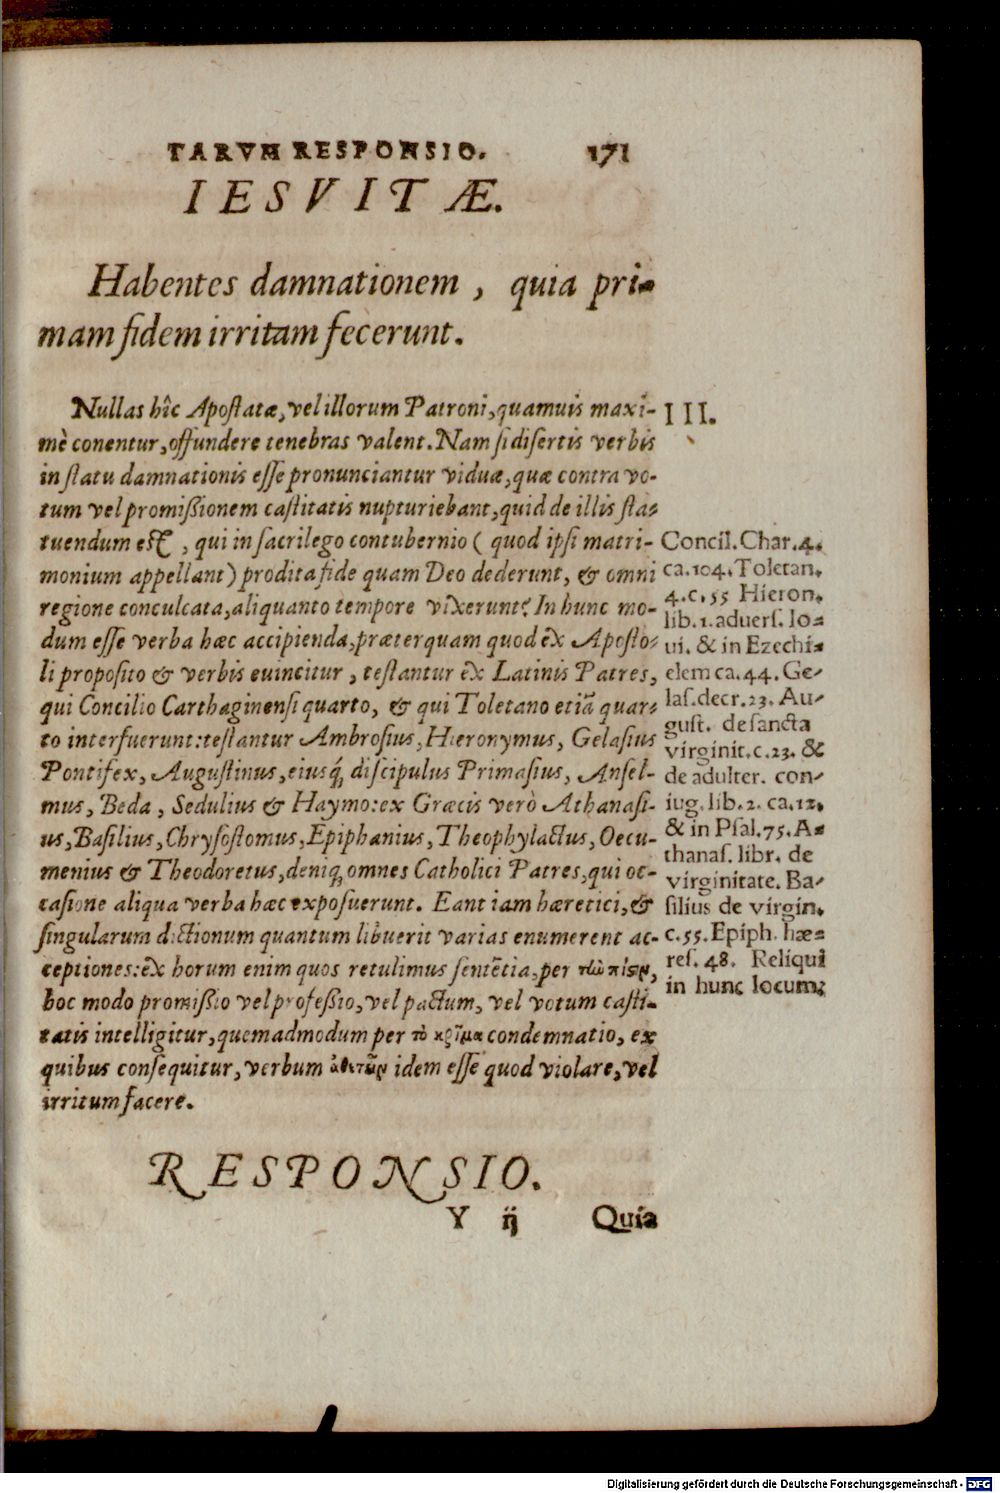 TARVM RESPONSIO. 171
IESVITÆ.
Habentes damnationem, quia pri-
mam fidem irritam fecerunt.
Nullas hîc Apostatæ, vel illorum Patroni, quamuis maxi-
mè conentur, offundere tenebras valent. Nam si disertis verbis
in statu damnationis esse pronunciantur viduæ, quæ contra vo-
tum vel promißionem castitatis nupturiebant, quid de illis sta-
tuendum est, qui in sacrilego contubernio (quod ipsi matri-
monium appellant) prodita fide quam Deo dederunt, & omni
regione conculcata, aliquanto tempore vixerunt? In hunc mo-
dum esse verba hæc accipienda, præterquam quod ex Aposto-
li proposito & verbis euincitur, testantur ex Latinis Patres,
qui Concilio Carthaginensi quarto, & qui Toletano etiā quar-
to interfuerunt: testantur Ambrosius, Hieronymus, Gelasius
Pontifex, Augustinus, eiusq́; discipulus Primasius, Ansel-
mus, Beda, Sedulius & Haymo: ex Græcis verò Athanasi-
us, Basilius, Chrysostomus, Epiphanius, Theophylactus, Oecu-
menius & Theodoretus, deniq; omnes Catholici Patres, qui oc-
casione aliqua verba hæc exposuerunt. Eant iam hæretici, &
singularum dictionum quantum libuerit varias enumerent ac-
ceptiones: ex horum enim quos retulimus sentētia, per τὼ πίςιν,
hoc modo promißio vel profeßio, vel pactum, vel votum casti-
tatis intelligitur, quemadmodum per τὸ κρῖμα condemnatio, ex
quibus consequitur, verbum ἀθετῶν idem esse quod violare, vel
irritum facere.
III.
Concil. Char. 4.
ca. 104. Toletan.
4. c. 55 Hieron.
lib. 1. aduers. Io-
ui. & in Ezechi-
elem ca. 44. Ge-
las. decr. 23. Au-
gust. de sancta
virginit. c. 23. &
de adulter. con-
iug. lib. 2. ca. 12.
& in Psal. 75. A-
thanas. libr. de
virginitate. Ba-
silius de virgin.
c. 55. Epiph. hæ-
res. 48. Reliqui
in hunc locum;
RESPONSIO.
Y ij Quia
Digitalisierung gefördert durch die Deutsche Forschungsgemeinschaft - DFG